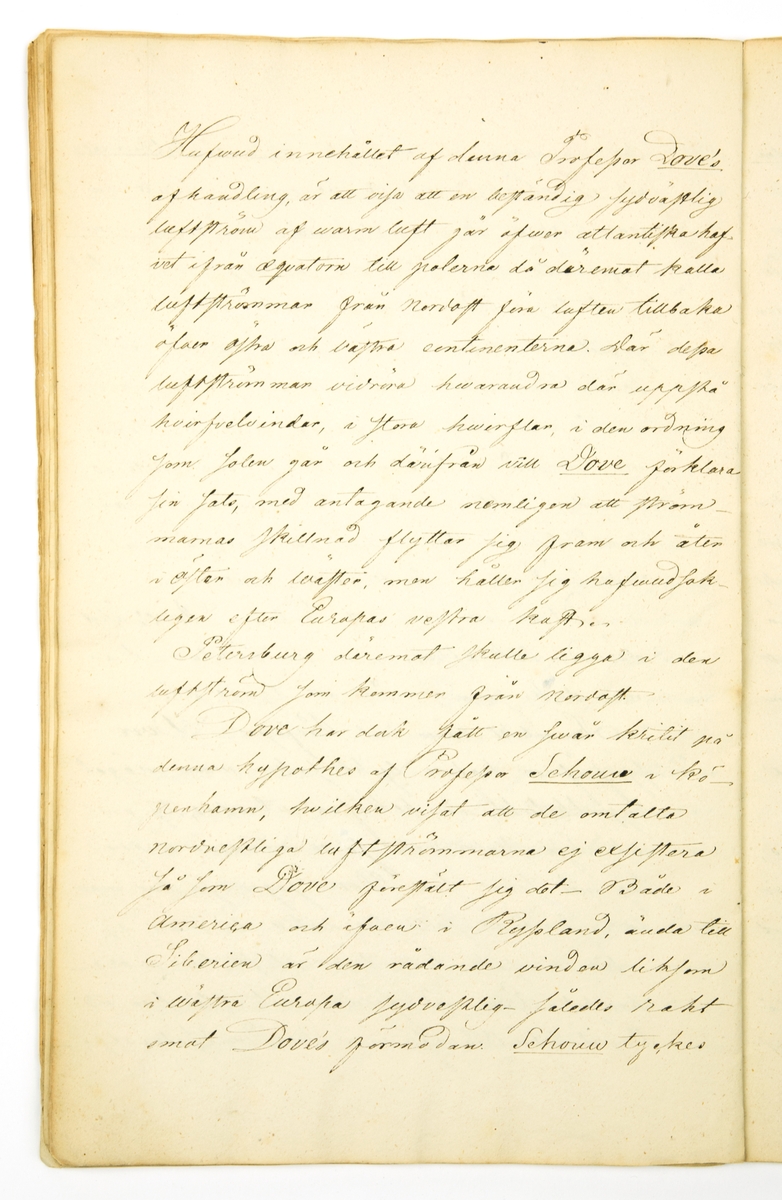 Hufwud innehållet af denna Professor Dove's
afhandling, är att visa att en beständig sydvästlig
luftström af warm luft går öfwer atlantiska haf-
vet ifrån æqvatorn till polerna då däremot kalla
luftströmmar från Nordost föra luften tillbaka
öfver östra och västra continenterna. Där dessa
luftströmmar vidröra hwarandra där uppstå
hvirfvelvindar, i stora hwirflar, i den ordning
som solen går och därifrån vill Dove förklara
sin sats, med antagande nemligen att ström-
marnas skillnad flyttar sig fram och åter
i öster och wäster, men håller sig hufwudsak-
ligen efter Europas vestra kust.
Petersburg däremot skulle ligga i den
luftström som kommer från Nordost.
Dove har dock fått en swår kritik på
denna hypothes af Professor Schouw i Kö-
penhamn, hwilken visat att de omtalta
nordvestliga luftströmmarna ej exsistera
så som Dove förestält sig det – Både i
America och äfven i Ryssland, ända till
Siberien är den rådande vinden liksom
i wästra Europa sydvestlig – således rakt
emot Dove's förmodan. Schouw tyckes